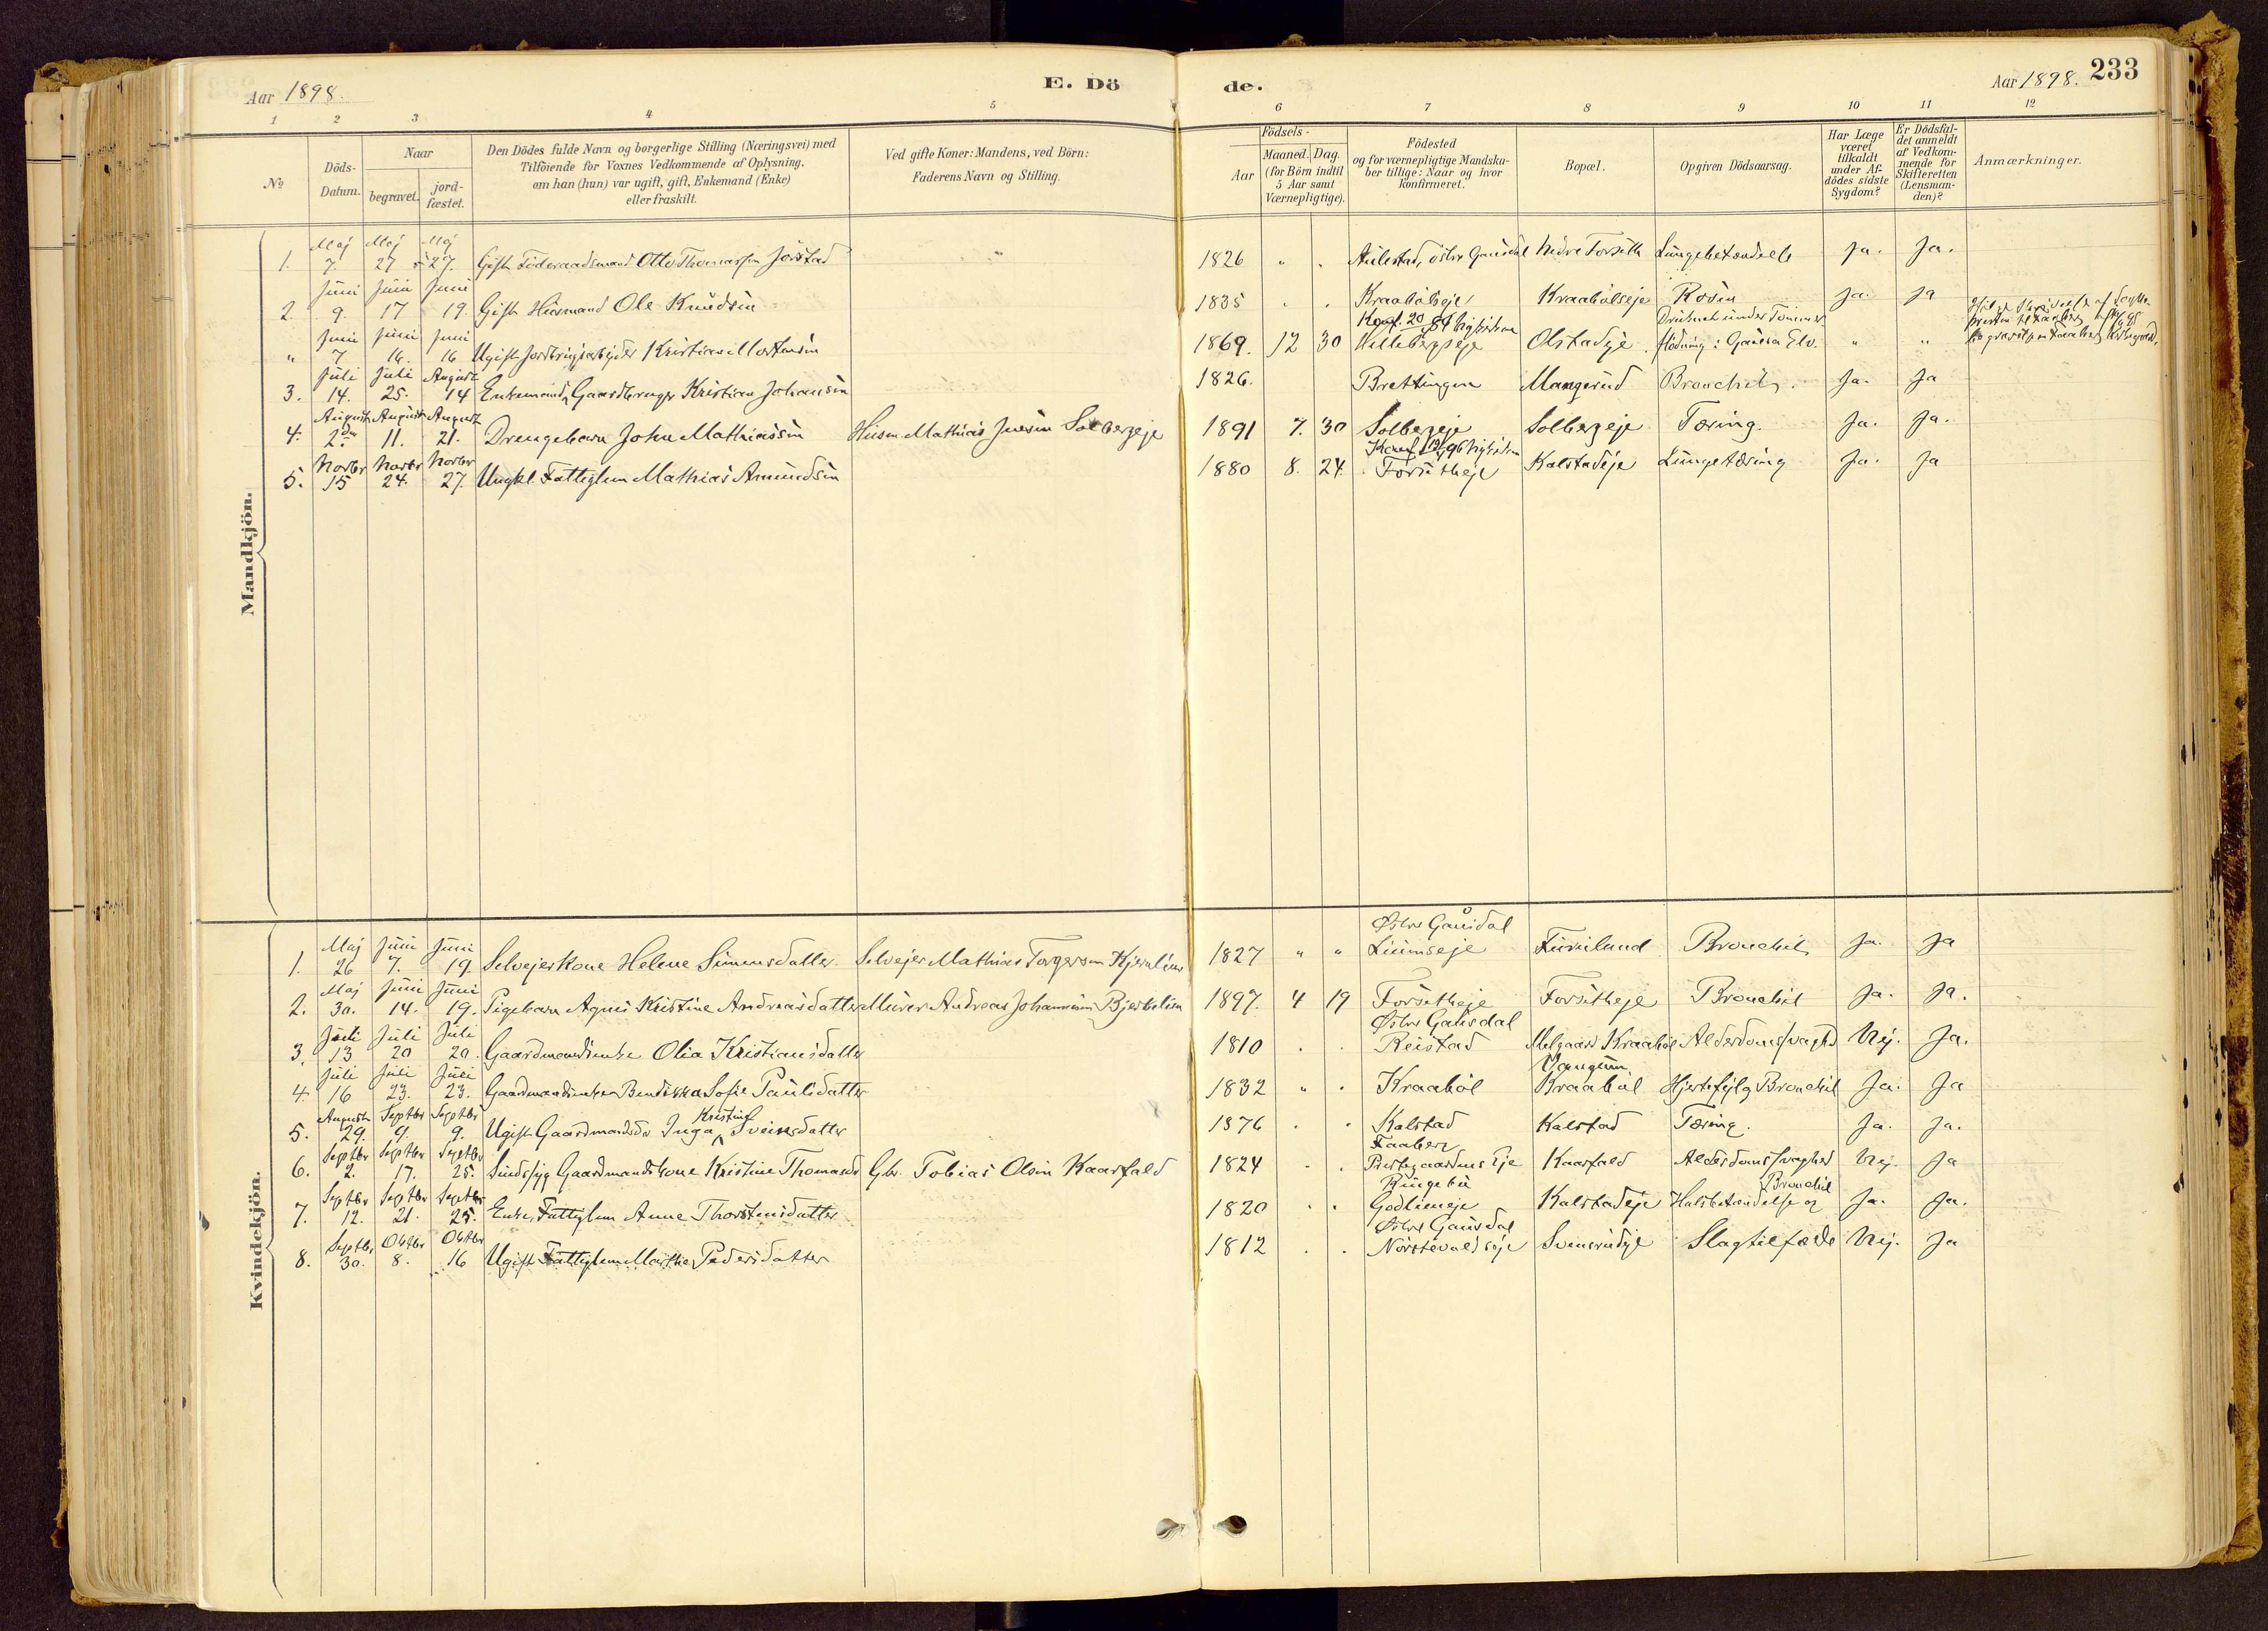 Aar 1898.
E. Dö
de.
Aar 1898.
233
1 2 3 4 5 6 7 8 9 10 11 12
No
Döds-
Datum.
Naar
begravet.
jord-
fæstet.
Den Dödes fulde Navn og borgerlige Stilling (Næringsvei) med
Tilföiende for Voxnes Vedkommende af Oplysning,
om han (hun) var ugift, gift, Enkemand (Enke)
eller fraskilt.
Ved gifte Koner: Mandens, ved Börn:
Faderens Navn og Stilling.
Födsels-
Aar
Maaned. Dag.
(for Börn indtil
5 Aar samt
Værnepligtige).
Födested
og for værnepligtige Mandska-
ber tillige: Naar og hvor
konfirmeret.
Bopæl.
Opgiven Dödsaarsag.
Har Læge
været
tilkaldt
under Af-
dödes sidste
Sygdom?
Er Dödsfal-
det anmeldt
af Vedkom-
mende for
Skifteretten
(Lensman-
den)?
Anmærkninger.
Mandkjön.
Maj Maj Maj
1. 7. 27 27. Gift Föderaadsmand Otto Thomassen Jörstad " 1826 " . Aulestad, östre Gausdal Nedre Forseth Lungebetændelse Ja. Ja.
Juni Juni Juni
2. 9. 17 19. Gift Husmand Ole Knudsen 1835 . . Kraabölseje Kraabölseje Rosen Ja. Ja
Juni Juni Juni
Konf. 20 84
Druknet under Tömmer
" 7 16. 16 Ugift Jordbrugsarbejder Kristian Mortensen 1869. 12 30 Hellebergseje Olstadeje flödning i Gausa Elv. " "
Juli Juli August
3. 14. 25. 14 Enkemand Gaardbruger Kristian Johansen 1826. Brettingen Mangerud Bronchit. Ja. Ja
August August August
4. 2den 11. 21. Drengebarn John Mathiassen Husm Mathias Juesen Solbergeje 1891 7. 30 Solbergeje Solbergeje Tæring. Ja. Ja.
Novbr Novbr Novbr
5. 15 24. 27. Ungkl. Fattiglem Mathias Amundsen 1880 8. 24. Forsetheje Kalstadeje Lungetæring Ja. Ja
Kvindekjön.
Maj Juni Juni
Østre Gausdal
1. 26 7. 19. Selvejerkone Helene Simensdatter Selvejer Mathias Torgersen 1827 " " Liumseje Furulund Bronchit Ja. Ja
Maj Juni Juni
2. 30. 14. 19. Pigebarn Agnes Kristine Andreasdatter Murer Andreas Johannesen Bjerkelien 1897. 4 19 Forsetheje Forsetheje Bronchit Ja. Ja.
Juli Juli Juli
Østre Gausdal
3. 13 20 20. Gaardmandsenke Olia Kristiansdatter 1810 . . Reistad Melgaard Kraaböl Alderdomssvaghd Nej. Ja.
Juli Juli Juli
Vangum
4. 16 23. 23. Gaardmandsenke Bendikka Sofie Paulsdatter 1832 " . Kraaböl Kraaböl Hjertefejl og Bronchit Ja. Ja
August Septbr Septbr
Kristine
5. 29. 9. 9. Ugift Gaardmandsdr Inga Sveinsdatter 1876 . . Kalstad Kalstad Tæring. Ja. Ja.
Septbr Septbr Septbr
Faaberg
6. 2. 17. 25. Sindssyg Gaardmandskone Kristine Thomasdr Gbr. Tobias Olsen Kaarfald 1824 . . Prestegaardens Eje Kaarfald Alderdomssvaghed Nej. Ja
Septbr Septbr Septbr
Ringebu
Bronchit
7. 12. 21. 25. Enke, Fattiglem Anne Thorstensdatter 1820 . . Godlieneje Kalstadeje Halsbetændelse og Ja. Ja.
Septbr Oktbr Oktbr
Østre Gausdal
8. 30. 8. 16 Ugift Fattiglem Marthe Pedersdatter 1812 . . Svensrudeje Slagtilfælde Nej. Ja